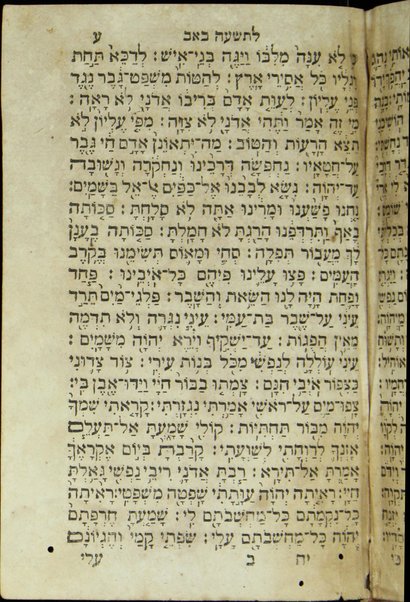 לתשעה באב
ע
כִּי לֹא עִנָּה מִלִּבּוֹ וַיַּגֶּה בְּנֵי־אִישׁ׃ לְדַכֵּא תַּחַת
רַגְלָיו כֹּל אֲסִירֵי אָרֶץ׃ לְהַטּוֹת מִשְׁפַּט־גָּבֶר נֶגֶד
פְּנֵי עֶלְיוֹן׃ לְעַוֵּת אָדָם בְּרִיבוֹ אֲדֹנָי לֹא רָאָה׃
מִי זֶה אָמַר וַתֶּהִי אֲדֹנָי לֹא צִוָּה׃ מִפִּי עֶלְיוֹן לֹא
תֵצֵא הָרָעוֹת וְהַטּוֹב׃ מַה־יִּתְאוֹנֵן אָדָם חָי גֶּבֶר
עַל־חֲטָאָיו׃ נַחְפְּשָׂה דְרָכֵינוּ וְנַחְקֹרָה וְנָשׁוּבָה
עַד־יְהוָה׃ נִשָּׂא לְבָבֵנוּ אֶל־כַּפָּיִם אֶל־אֵל בַּשָּׁמָיִם׃
נַחְנוּ פָשַׁעְנוּ וּמָרִינוּ אַתָּה לֹא סָלָחְתָּ׃ סַכּוֹתָה
בָאַף וַתִּרְדְּפֵנוּ הָרַגְתָּ לֹא חָמָלְתָּ׃ סַכּוֹתָה בֶעָנָן
לָךְ מֵעֲבוֹר תְּפִלָּה׃ סְחִי וּמָאוֹס תְּשִׂימֵנוּ בְּקֶרֶב
הָעַמִּים׃ פָּצוּ עָלֵינוּ פִּיהֶם כָּל־אֹיְבֵינוּ׃ פַּחַד
וָפַחַת הָיָה לָנוּ הַשֵּׁאת וְהַשָּׁבֶר׃ פַּלְגֵי־מַיִם תֵּרַד
עֵינִי עַל־שֶׁבֶר בַּת־עַמִּי׃ עֵינִי נִגְּרָה וְלֹא תִדְמֶה
מֵאֵין הֲפֻגוֹת׃ עַד־יַשְׁקִיף וְיֵרֶא יְהוָה מִשָּׁמָיִם׃
עֵינִי עוֹלְלָה לְנַפְשִׁי מִכֹּל בְּנוֹת עִירִי׃ צוֹד צָדוּנִי
כַּצִּפּוֹר אֹיְבַי חִנָּם׃ צָמְתוּ בַבּוֹר חַיָּי וַיַּדּוּ־אֶבֶן בִּי׃
צָפוּ־מַיִם עַל־רֹאשִׁי אָמַרְתִּי נִגְזָרְתִּי׃ קָרָאתִי שִׁמְךָ
יְהוָה מִבּוֹר תַּחְתִּיּוֹת׃ קוֹלִי שָׁמָעְתָּ אַל־תַּעְלֵם
אָזְנְךָ לְרַוְחָתִי לְשַׁוְעָתִי׃ קָרַבְתָּ בְּיוֹם אֶקְרָאֶךָּ
אָמַרְתָּ אַל־תִּירָא׃ רַבְתָּ אֲדֹנָי רִיבֵי נַפְשִׁי גָּאַלְתָּ
חַיָּי׃ רָאִיתָה יְהוָה עַוָּתָתִי שָׁפְטָה מִשְׁפָּטִי׃ רָאִיתָה
כָּל־נִקְמָתָם כָּל־מַחְשְׁבֹתָם לִי׃ שָׁמַעְתָּ חֶרְפָּתָם
יְהוָה כָּל־מַחְשְׁבֹתָם עָלָי׃ שִׂפְתֵי קָמַי וְהֶגְיוֹנָם
יח ב עלי